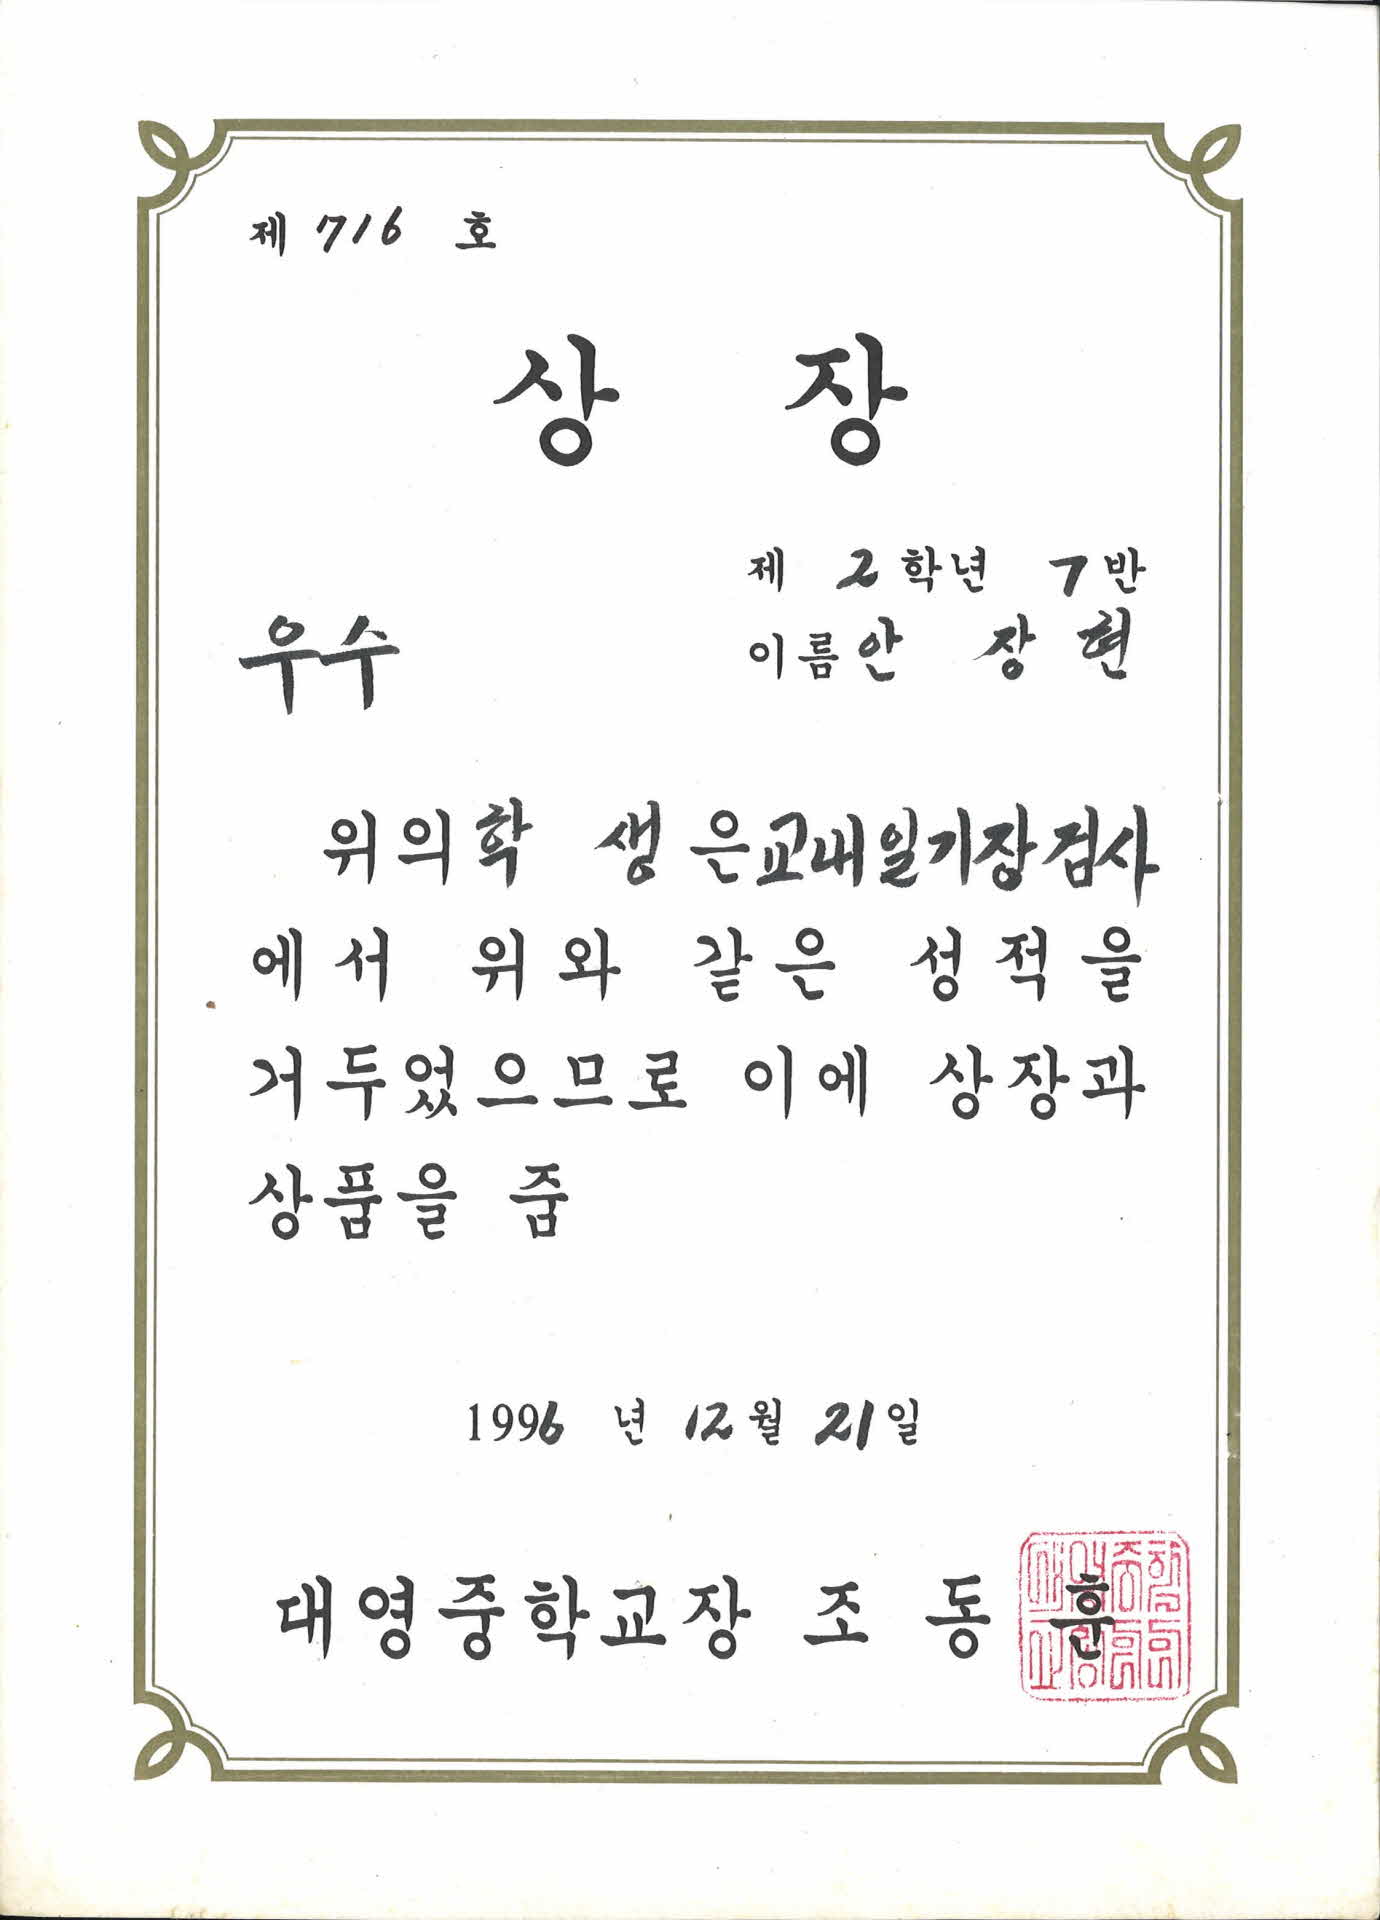 제 716 호
상 장
제 2학년 7반
우수
이름 안 장 현
위의 학 생은 교내일기장검사
에서 위와 같은 성적을
거두었으므로 이에 상장과
상품을 줌
1996 년 12월 21일
대영중학교장 조 동 훈